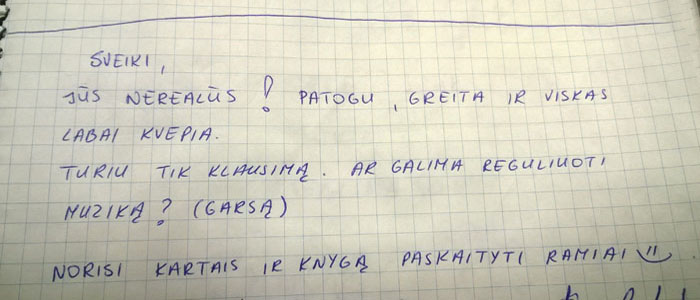 SVEIKI,
JŪS NEREALŪS! PATOGU, GREITA IR VISKAS
LABAI KVEPIA.
TURIU TIK KLAUSIMĄ. AR GALIMA REGULIUOTI
MUZIKĄ? (GARSĄ)
NORISI KARTAIS IR KNYGĄ PASKAITYTI RAMIAI